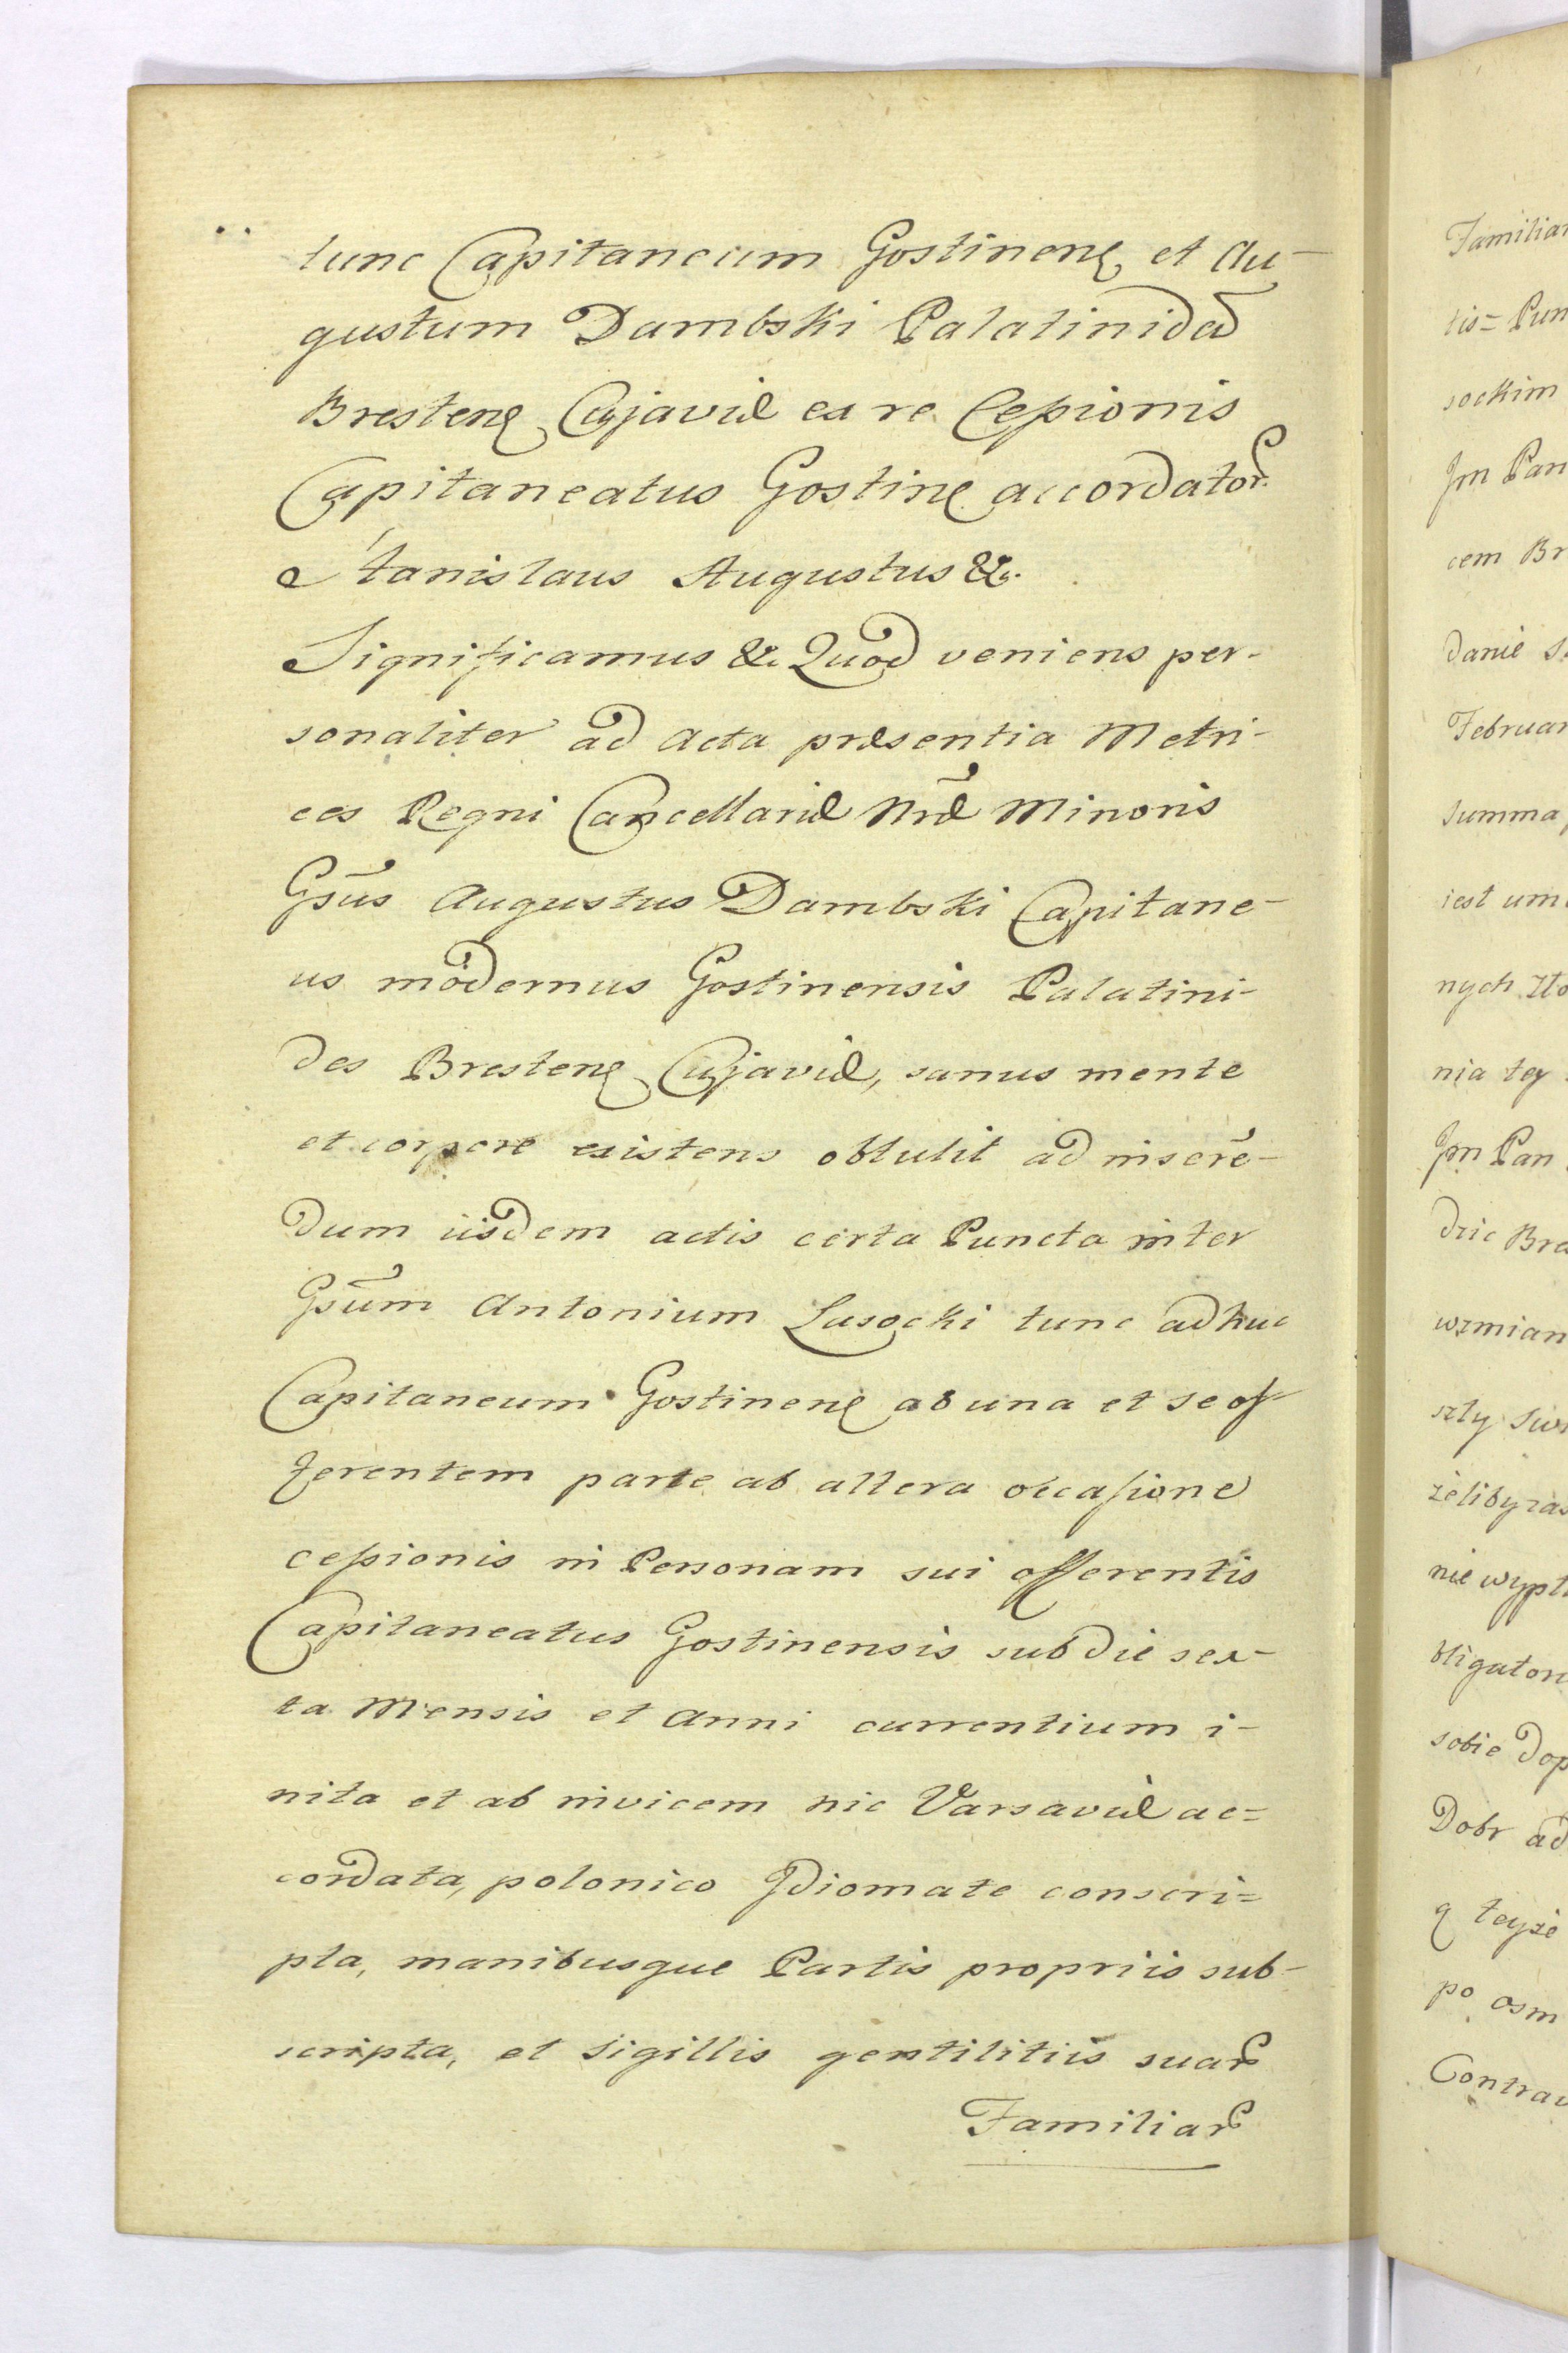 tunc Capitaneum Gostinenę et Au-
gustum Dambski Palatinidã
Brestenę Cujaviæ ex re Cessionis
Capitaneatus Gostinę accordator.
Stanislaus Augustus &c.
Significamus &c. Quod veniens per-
sonaliter ad Acta præsentia Metri-
ces Regni Cancellariæ Nræ Minoris
Gsũs Augustus Dambski Capitane-
us modernus Gostinensis Palatini-
des Brestenę Cujaviæ, sanus mente
et corpore existens obtulit ad inserẽ-
dum iisdem actis certa Puncta inter
Gsũm Antonium Lasocki tunc adhuc
Capitaneum Gostinenę ab una et se of-
ferentem parte ab altera occasione
cessionis in Personam sui offerentis
Capitaneatus Gostinensis sub die sex-
ta Mensis et Anni currentium i-
nita et ab invicem hic Varsaviæ ac=
cordata, polonico Idiomate conscri=
pta, manibusque Partis propriis sub-
scripta, et Sigillis gentilitiis suar
Familiar
Familiar
tis= Pun
sockim
Jm Pan
cem Br
danie
Februar
summa
iest um
nych Zło
nia tey
Jm Pan
dzic Bre
wzmian
szły
żeliby zas
nie wypł
bligator
sobie Dop
Dobr ad
q teyże
po osm
Contrav